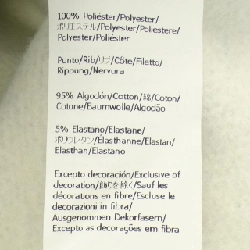 100% Poliéster/Polyester/
ポリエステル/Polyester/Poliestere/
Polyester/Poliéster
Punto/Rib/リブ/Côte/Filetto/
Rippung/Nervura
95% Algodón/Cotton/綿/Coton/
Cotone/Baumwolle/Algodão
5% Elastano/Elastane/
ポリウレタン/Élasthanne/Elastan/
Elasthan/Elastano
Excepto decoración/Exclusive of
decoration/飾りを除く/Sauf les
décorations en fibre/Escluse le
decorazioni in fibra/
Ausgenommen Dekorfasern/
Excepto as decorações em fibra